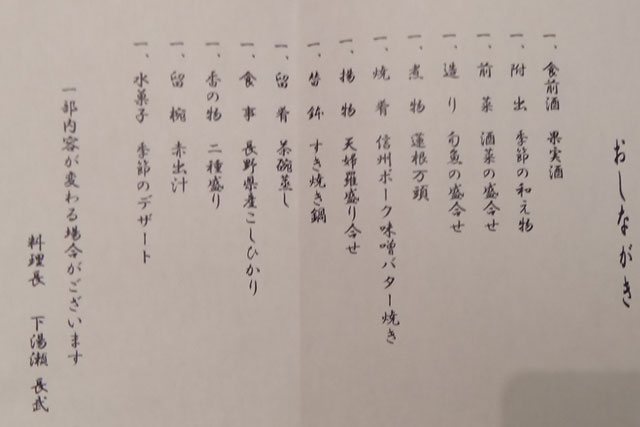 おしながき
一、食前酒 果実酒
一、附出 季節の和え物
一、前菜 酒菜の盛合せ
一、造り 旬魚の盛合せ
一、煮物 蓮根万頭
一、焼肴 信州ポーク味噌バター焼き
一、揚物 天婦羅盛り合せ
一、台鉢 すき焼き鍋
一、留肴 茶碗蒸し
一、食事 長野県産こしひかり
一、香の物 二種盛り
一、留椀 赤出汁
一、水菓子 季節のデザート
一部内容が変わる場合がございます
料理長 下湯瀬 長武